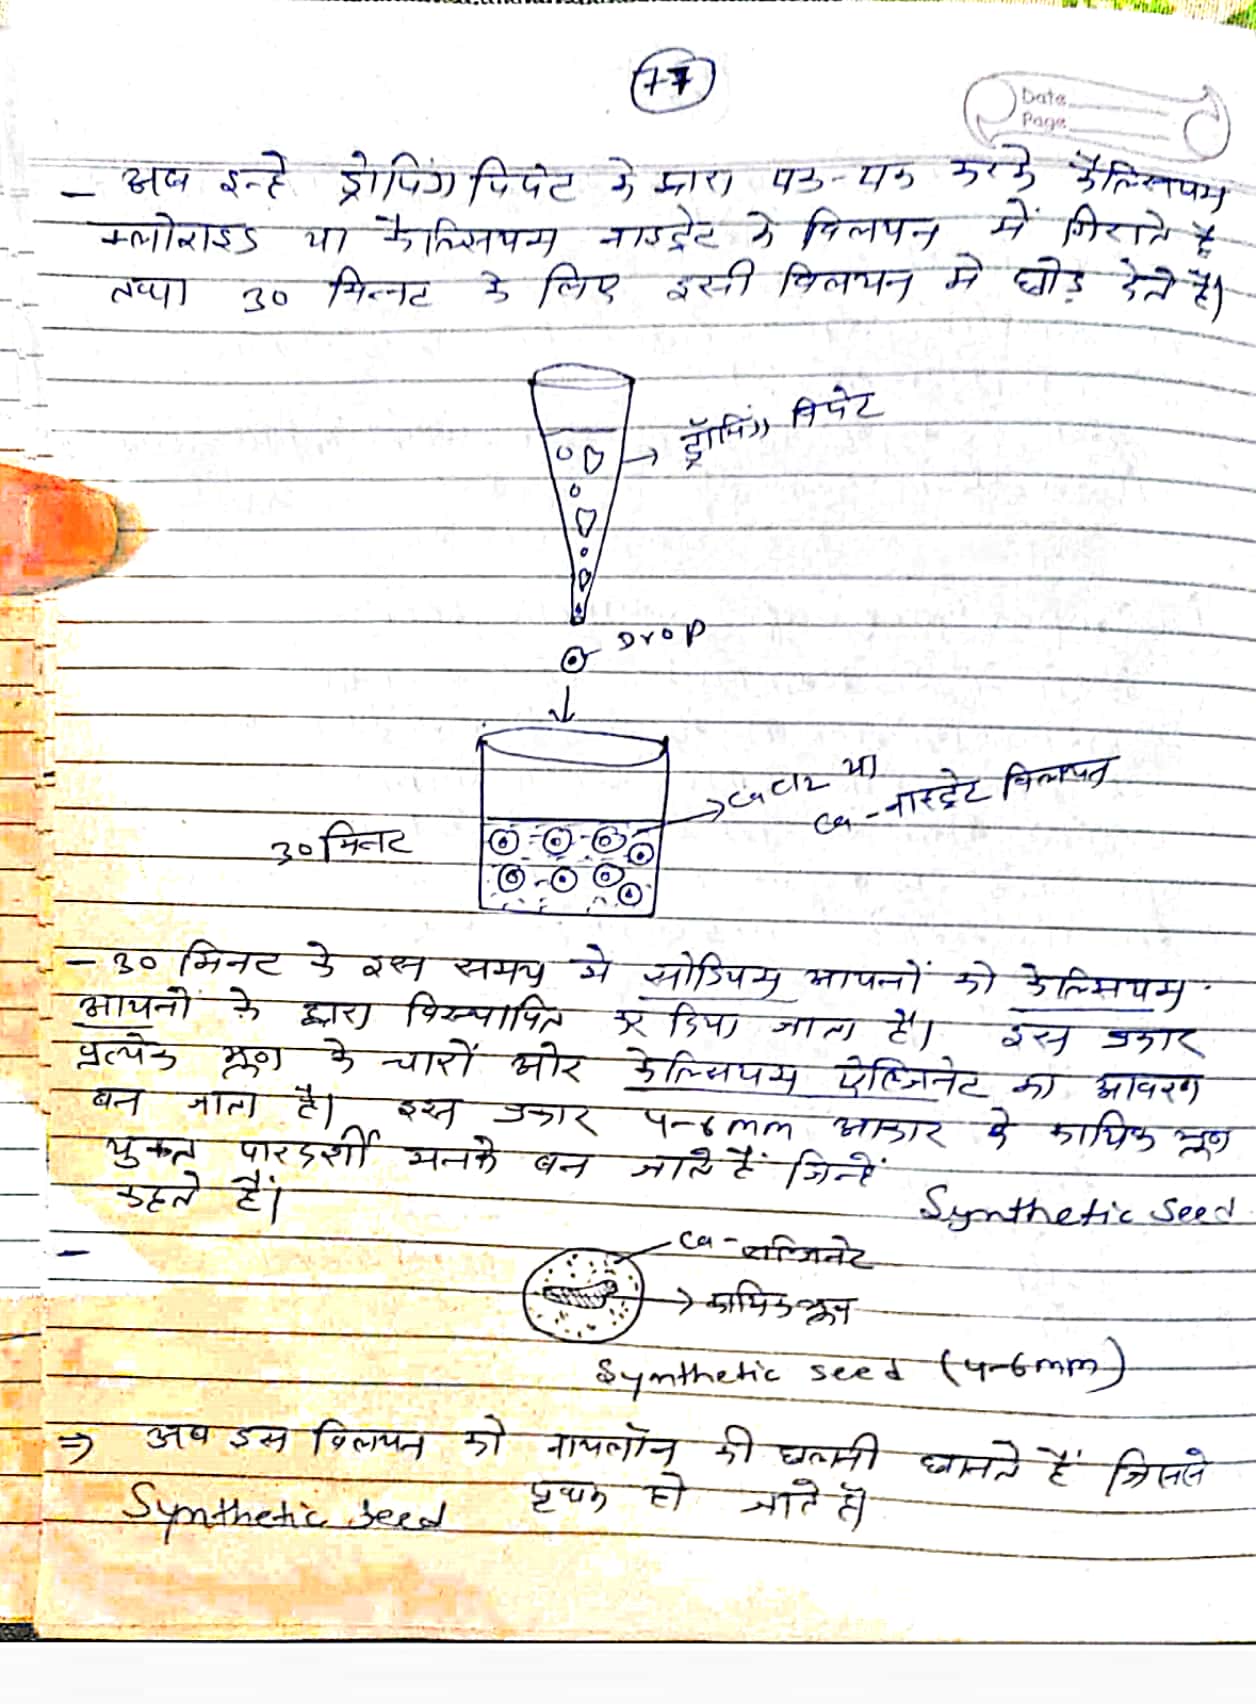 77
Date
Page
- अब इन्हे ड्रोपिंग पिपेट के द्वारा एक-एक करके कैल्सियम
क्लोराइड या कैल्सियम नाइट्रेट के विलयन में गिराते है
तथा 30 मिनट के लिए इसी विलयन मे छोड़ देते है।
ड्रॉपिंग पिपेट
Drop
CaCl2 या
Ca-नाइट्रेट विलयन
30 मिनट
- 30 मिनट के इस समय मे सोडियम आयनों को केल्सियम
आयनों के द्वारा विस्थापित कर दिया जाता है। इस प्रकार
प्रत्येक भ्रूण के चारों ओर केल्सियम ऐल्जिनेट का आवरण
बन जाता है। इस प्रकार 4-6mm आकार के कायिक भ्रूण
युक्त पारदर्शी मनके बन जाते हैं जिन्हें Synthetic Seed
कहते हैं।
-
Ca-एल्जिनेट
कायिक भ्रूण
Synthetic seed (4-6mm)
⇒ अब इस विलयन को नायलॉन की छलनी छानते हैं जिससे
Synthetic seed पृथक हो जाते है।